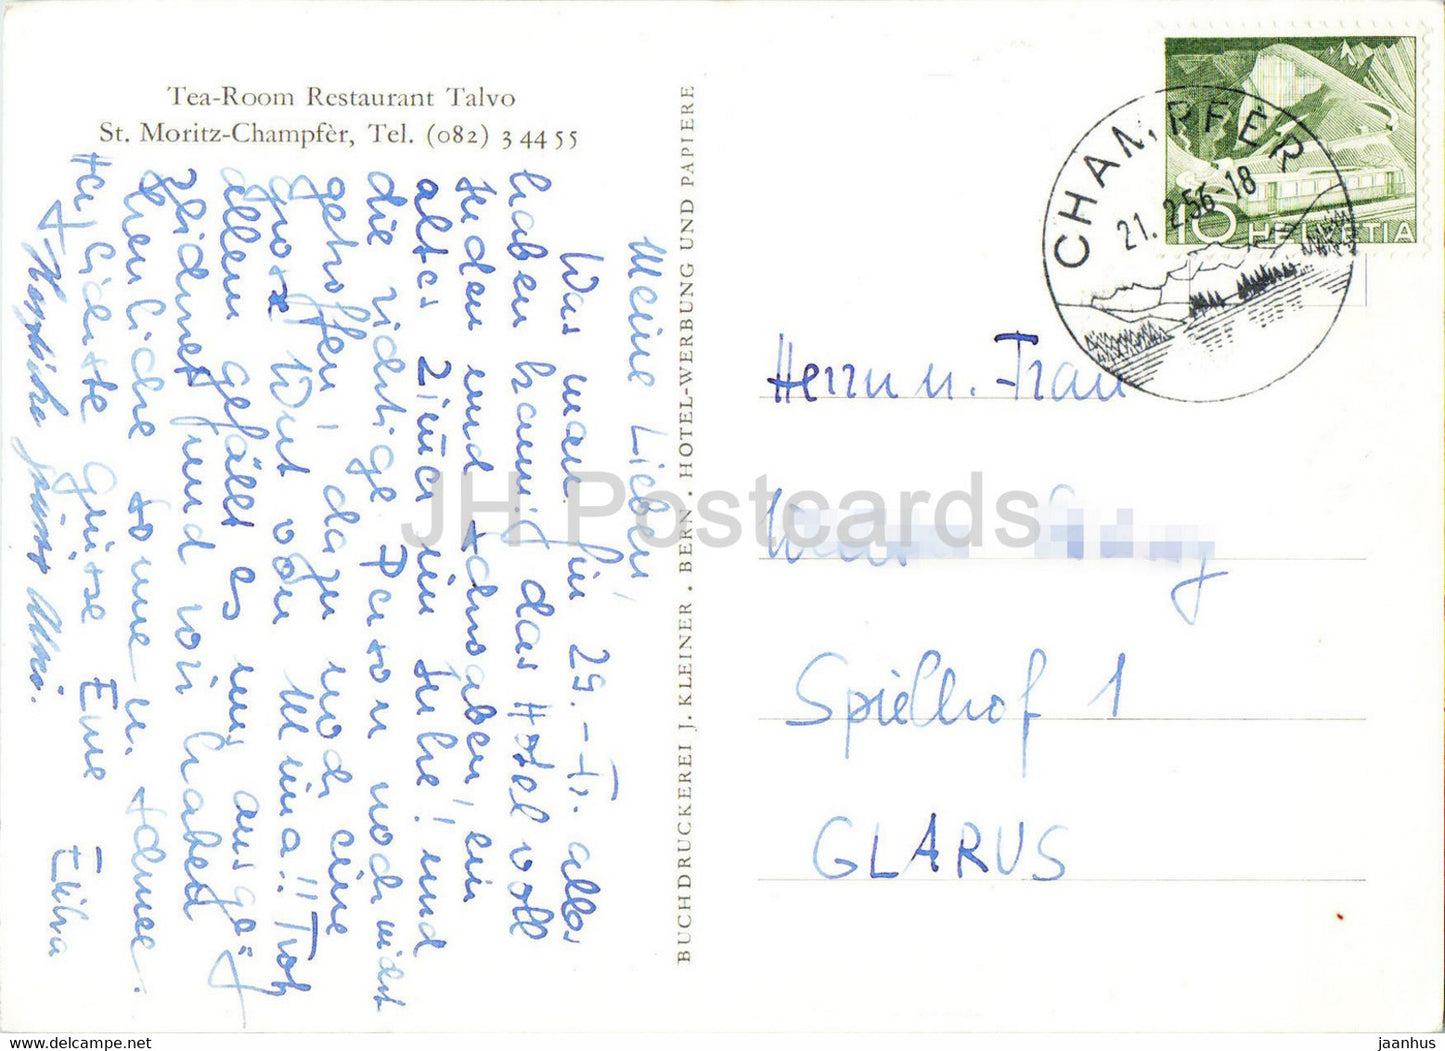 Tea-Room Restaurant Talvo
St. Moritz-Champfèr, Tel. (082) 3 44 55
Meine Lieben!
Was man für 29.- Fr. alles
haben kann, das Hotel voll
Juden und Schwaben, ein
altes Zimmer ein Juhe! und
die richtige Person noch nicht
getroffen, dazu noch eine
grosse Wut von
allem gefällt es mir ausge-
zeichnet und wir haben
herrliche Sonne u. Schnee.
Herzlichste Grüsse Eure
Herzliche grüsse
BUCHDRUCKEREI J. KLEINER . BERN . HOTEL-WERBUNG UND PAPIERE
CHAMPFER
21. 2.56-18
10 HELVETIA
Herrn u. Frau
Spielhof 1
GLARUS
JH Postcards
eu.delcampe.net
jaanhus